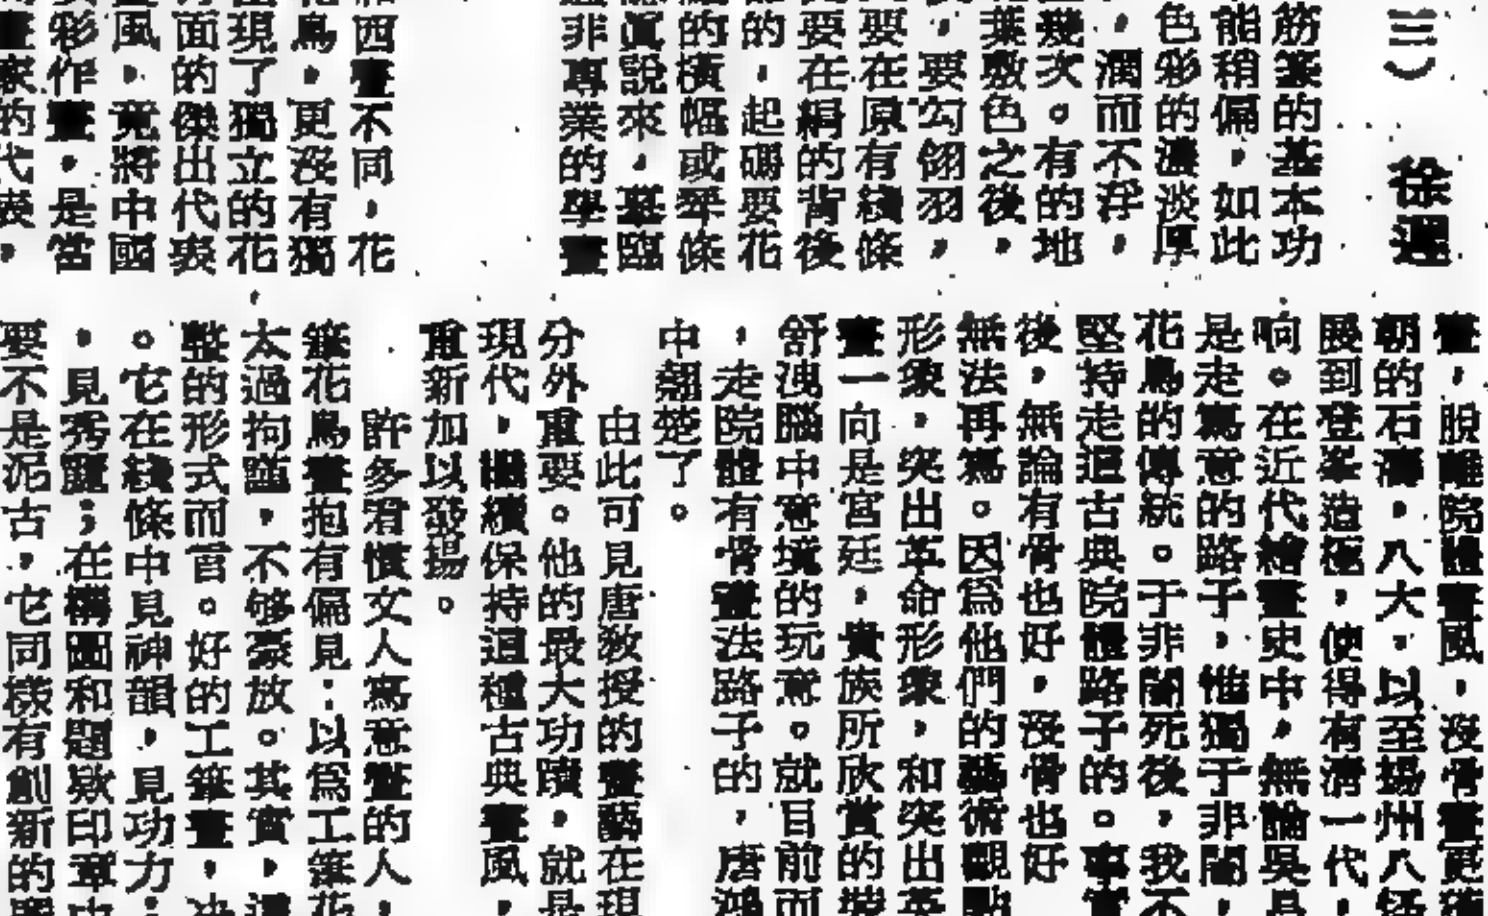 三） 徐遲
筋篆的基本功
能稍偏，如此
色彩的濃淡厚
，潤而不浮，
幾次。有的地
葉敷色之後，
，要勾翎羽，
要在原有綫條
要在絹的背後
的，起碼要花
的橫幅或琴條
眞說來，摹臨
非專業的學畫
西畫不同，花
鳥，更沒有獨
現了獨立的花
面的傑出代表
風，竟將中國
彩作畫，是當
畫家的代表，
畫，脫離院體畫風，沒骨畫更
朝的石濤，八大，以至揚州八
展到登峯造極，使得有清一代，
响。在近代繪畫史中，無論吳昌
是走寫意的路子，惟獨于非闇，
花鳥的傳統。于非闇死後，我不
堅持走這古典院體路子的。事實
後，無論有骨也好，沒骨也好
無法再寫。因爲他們的藝術觀點
形象，突出革命形象，和突出英
畫一向是宮廷，貴族所欣賞的
舒洩腦中意境的玩意。就目前而
，走院體有骨畫法路子的，唐鴻
中翹楚了。
由此可見唐敎授的畫藝在現
分外重要。他的最大功蹟，就是
現代，繼續保持這種古典畫風，
重新加以發揚。
許多看慣文人寫意畫的人，
筆花鳥畫抱有偏見：以爲工筆花
太過拘謹，不够豪放。其實，還
整的形式而言。好的工筆畫，决
。它在綫條中見神韻，見功力；
，見秀麗；在構圖和題欵印章中
要不是泥古，它同樣有創新的